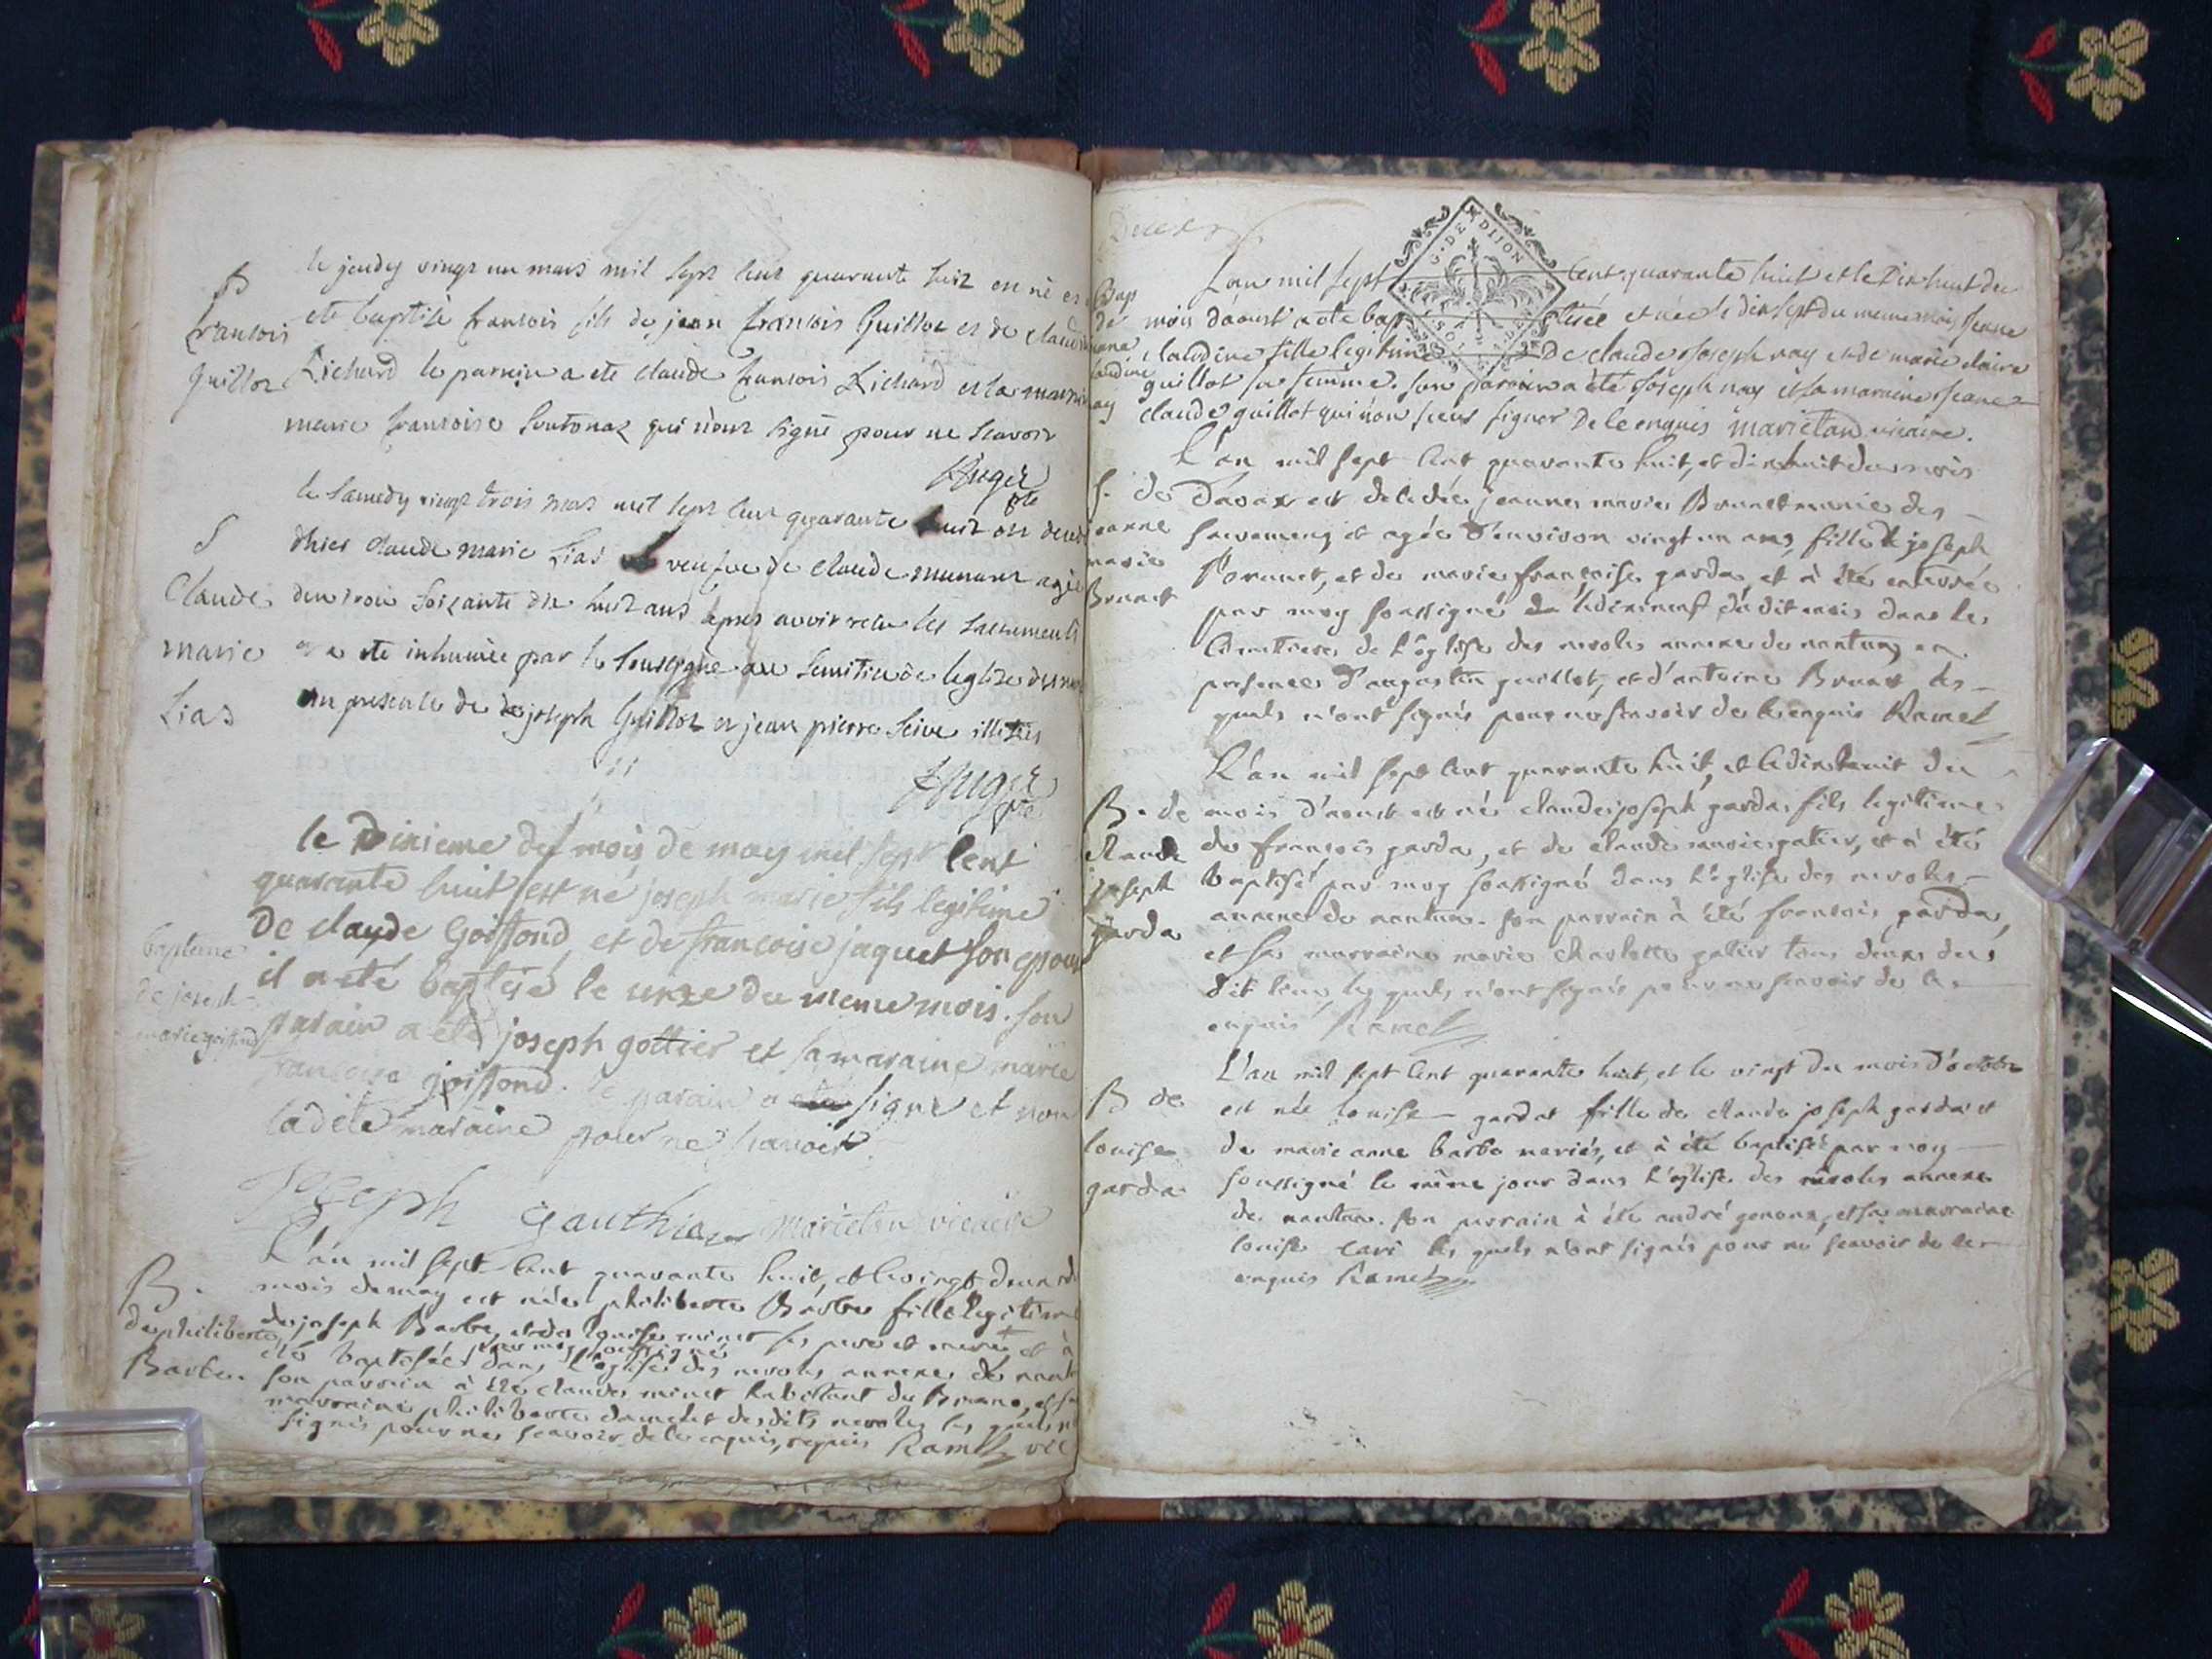 B
francois
Guilloz
le jeudy vingt un mars mil sept cent quarante huit on né et
ete baptisé francois fils de jean francois Guilloz et de claudine
Richard le parrain a ete claude francois Richard et la marraine
marie francoise qui n'ont signé pour ne scavoir
Huger
pte
S
Claude
marie
Lias
le samedy vingt trois mars mil sept cent quarante huit
d'hier claude marie Lias veufve de claude agée
d'environ soixante dix huit ans apres avoir recu les sacrements
a ete inhumée par le soussigné au semitiere de leglise des
en presence de joseph Guilloz et jean pierre Seive illitres
Huger
pte
bapteme
de joseph
marie goiffond
le dixieme du mois de may mil sept cent
quarante huit est né joseph marie fils legitime
de claude Goiffond et de francoise jaquet son epouse
il a eté baptisé le unze du meme mois. son
parain a eté joseph gottier et sa maraine marie
francoise goiffond. le parain a signé et non
ladite maraine pour ne scavoir.
Joseph Gauthier marietan vicaire
B.
de philiberte
Barbe.
L'an mil sept cent quarante huit, et le vingt deux du
mois de may est née philiberte Barbe fille legitime
de joseph Barbe, et de louise minet ses pere et mere et à
par moy soussigné
été baptisée dans l'église des nerolles annexe de nantua
son parrain à été claude minet habitant du , et sa
marraine philiberte des dits nerolles les quels n'
signés pour ne scavoir de ce enquis, requis Ramel vic
G. DE DIJON
Bap
de
jeane
claudine
nay
L'an mil sept cent quarante huit et le dix huit du
mois d'aoust a ete baptisée et née le dix sept du meme mois jeane
claudine fille legitime de claude joseph nay et de marie claire
guillot sa femme. son parrain a été joseph nay et sa maraine jeane
claude guillot qui n'on sceus signer de ce enquis marietan vicaire.
S. de
jeanne
marie
Brunet
L'an mil sept cent quarante huit, et dix huit du mois
d' est decedée jeanne marie Brunet munie des
sacremens et agée d'environ vingt un ans fille de joseph
Brunet, et de marie françoise garda, et à été enterrée
par moy soussigné le dixneuf du dit mois dans le
cimetiere de l'église des nerolles annexe de nantua en
presence d'augustin guillot, et d'antoine Brunet les
quels n'ont signés pour ne scavoir de ce enquis Ramel
B. de
claude
joseph
garda
L'an mil sept cent quarante huit, et le dixhuit du
mois d'aoust est né claude joseph garda fils legitime
de françois garda, et de claude marie gatier, et à été
baptisé par moy soussigné dans l'église des nerolles
annexe de nantua. son parrain à été francois garda,
et sa marraine marie charlotte gatier tous deux du
dit lieu les quels n'ont signés pour ne scavoir de ce
enquis Ramel
B de
louise
garda
L'an mil sept cent quarante huit, et le vingt du mois d'octobre
est née louise gardat fille de claude joseph garda et
de marie anne barbe mariés, et à été baptisée par moy
soussigné le même jour dans l'église des nerolles annexe
de nantua. son parrain à été andré , et sa marraine
louise les quels n'ont signés pour ne scavoir de ce
enquis Ramel